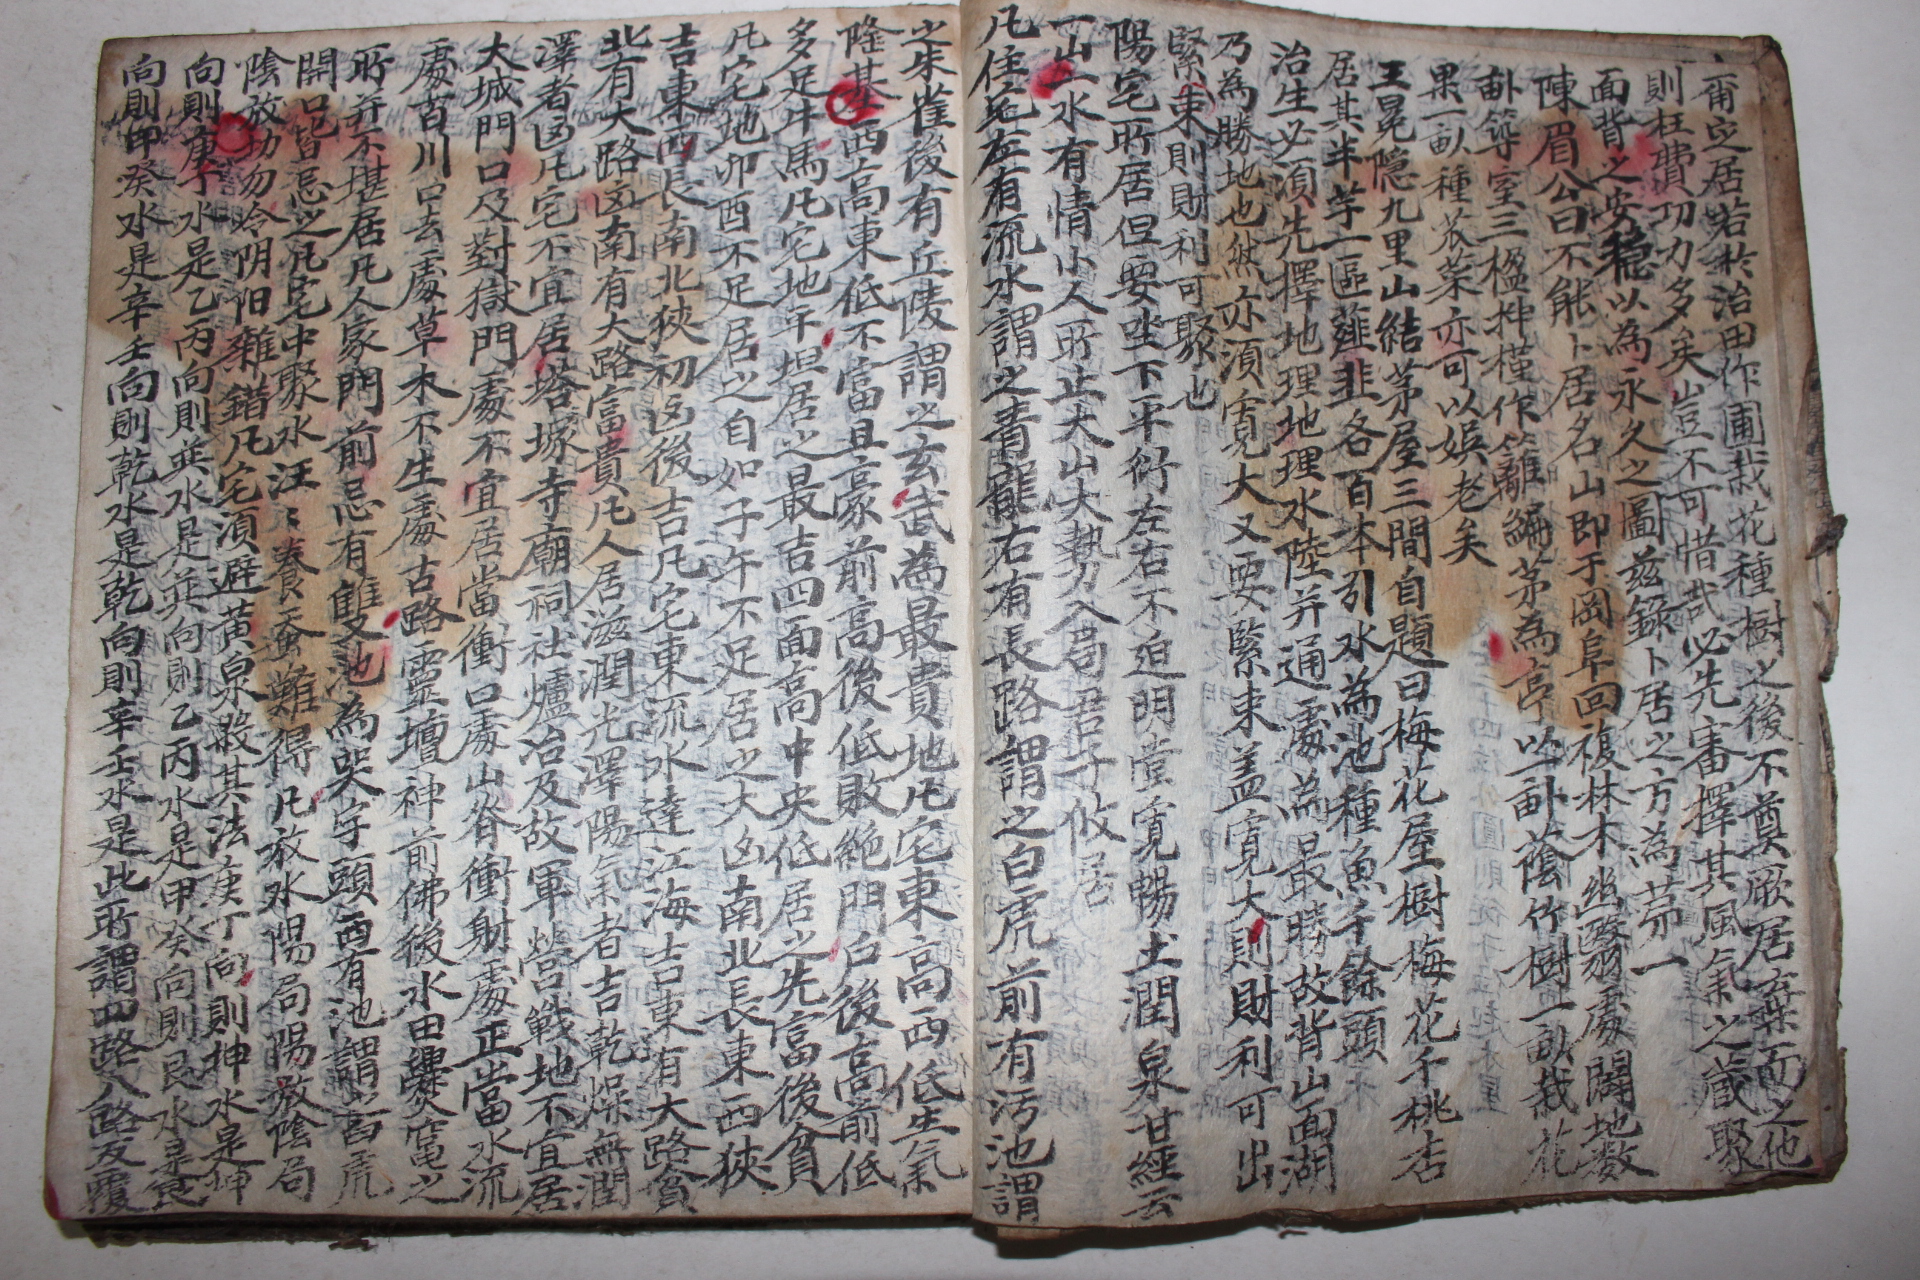 爾定居若於治田作圃栽花種樹之後不奠厥居弃而之他
則枉費功力多矣豈不可惜哉必先審擇其風氣之藏聚
面背之安穩以為永久之圖茲錄卜居之方為第一
陳眉公曰不能卜居名山即于岡阜回複林木幽翳處闢地數
畝築室三楹挿槿作籬編茅為亭以一畝蔭竹樹一畝栽花
果一畝種苽菜亦可以娛老矣
王冕隱九里山結茅屋三間自題曰梅花屋樹梅花千桃杏
居其半芋一區薤韭各百本引水為池種魚千餘頭
治生必湏先擇地理地理水陸并通處為最勝故背山面湖
乃為勝地也然亦湏寬大又要緊束盖寬大則財利可出
緊束則財利可聚也
陽宅所居但要坐下平衍左右不迫明堂寬暢土潤泉甘經云
一山一水有情小人所止大山大勢入局君子攸居
凡住宅左有流水謂之青龍右有長路謂之白虎前有污池謂
之朱雀後有丘陵謂之玄武為最貴地凡宅東高西低生氣
隆基西高東低不富且豪前高後低敗絶門户後高前低
多足牛馬凡宅地平坦居之最吉四面高中央低居之先富後貧
凡宅地卯酉不足居之自如子午不足居之大凶南北長東西狹
吉東西長南北狹初凶後吉凡宅東流水達江海吉東有大路貧
北有大路凶南有大路富貴凡人居滋潤光澤陽氣者吉乾燥無潤
澤者凶凡宅不宜居塔塚寺廟祠社爐冶及故軍營戰地不宜居
大城門口及對獄門處不宜居當衝口處山脊衝射處正當水流
處百川口去處草木不生處古路靈壇神前佛後水田爨竃之
所并不堪居凡人家門前忌有雙池為哭字頭西有池謂白虎
開口皆忌之凡宅中聚水汪々養蚕難得凡放水陽局陽放陰局
陰放切勿冷阴阳雜錯凡宅湏避黄泉殺其法庚丁向則坤水是坤
向則庚丁水是乙丙向則巽水是巽向則乙丙水是甲癸向則艮水是艮
向則甲癸水是辛壬向則乾水是乾向則辛壬水是此所謂四路八路反覆